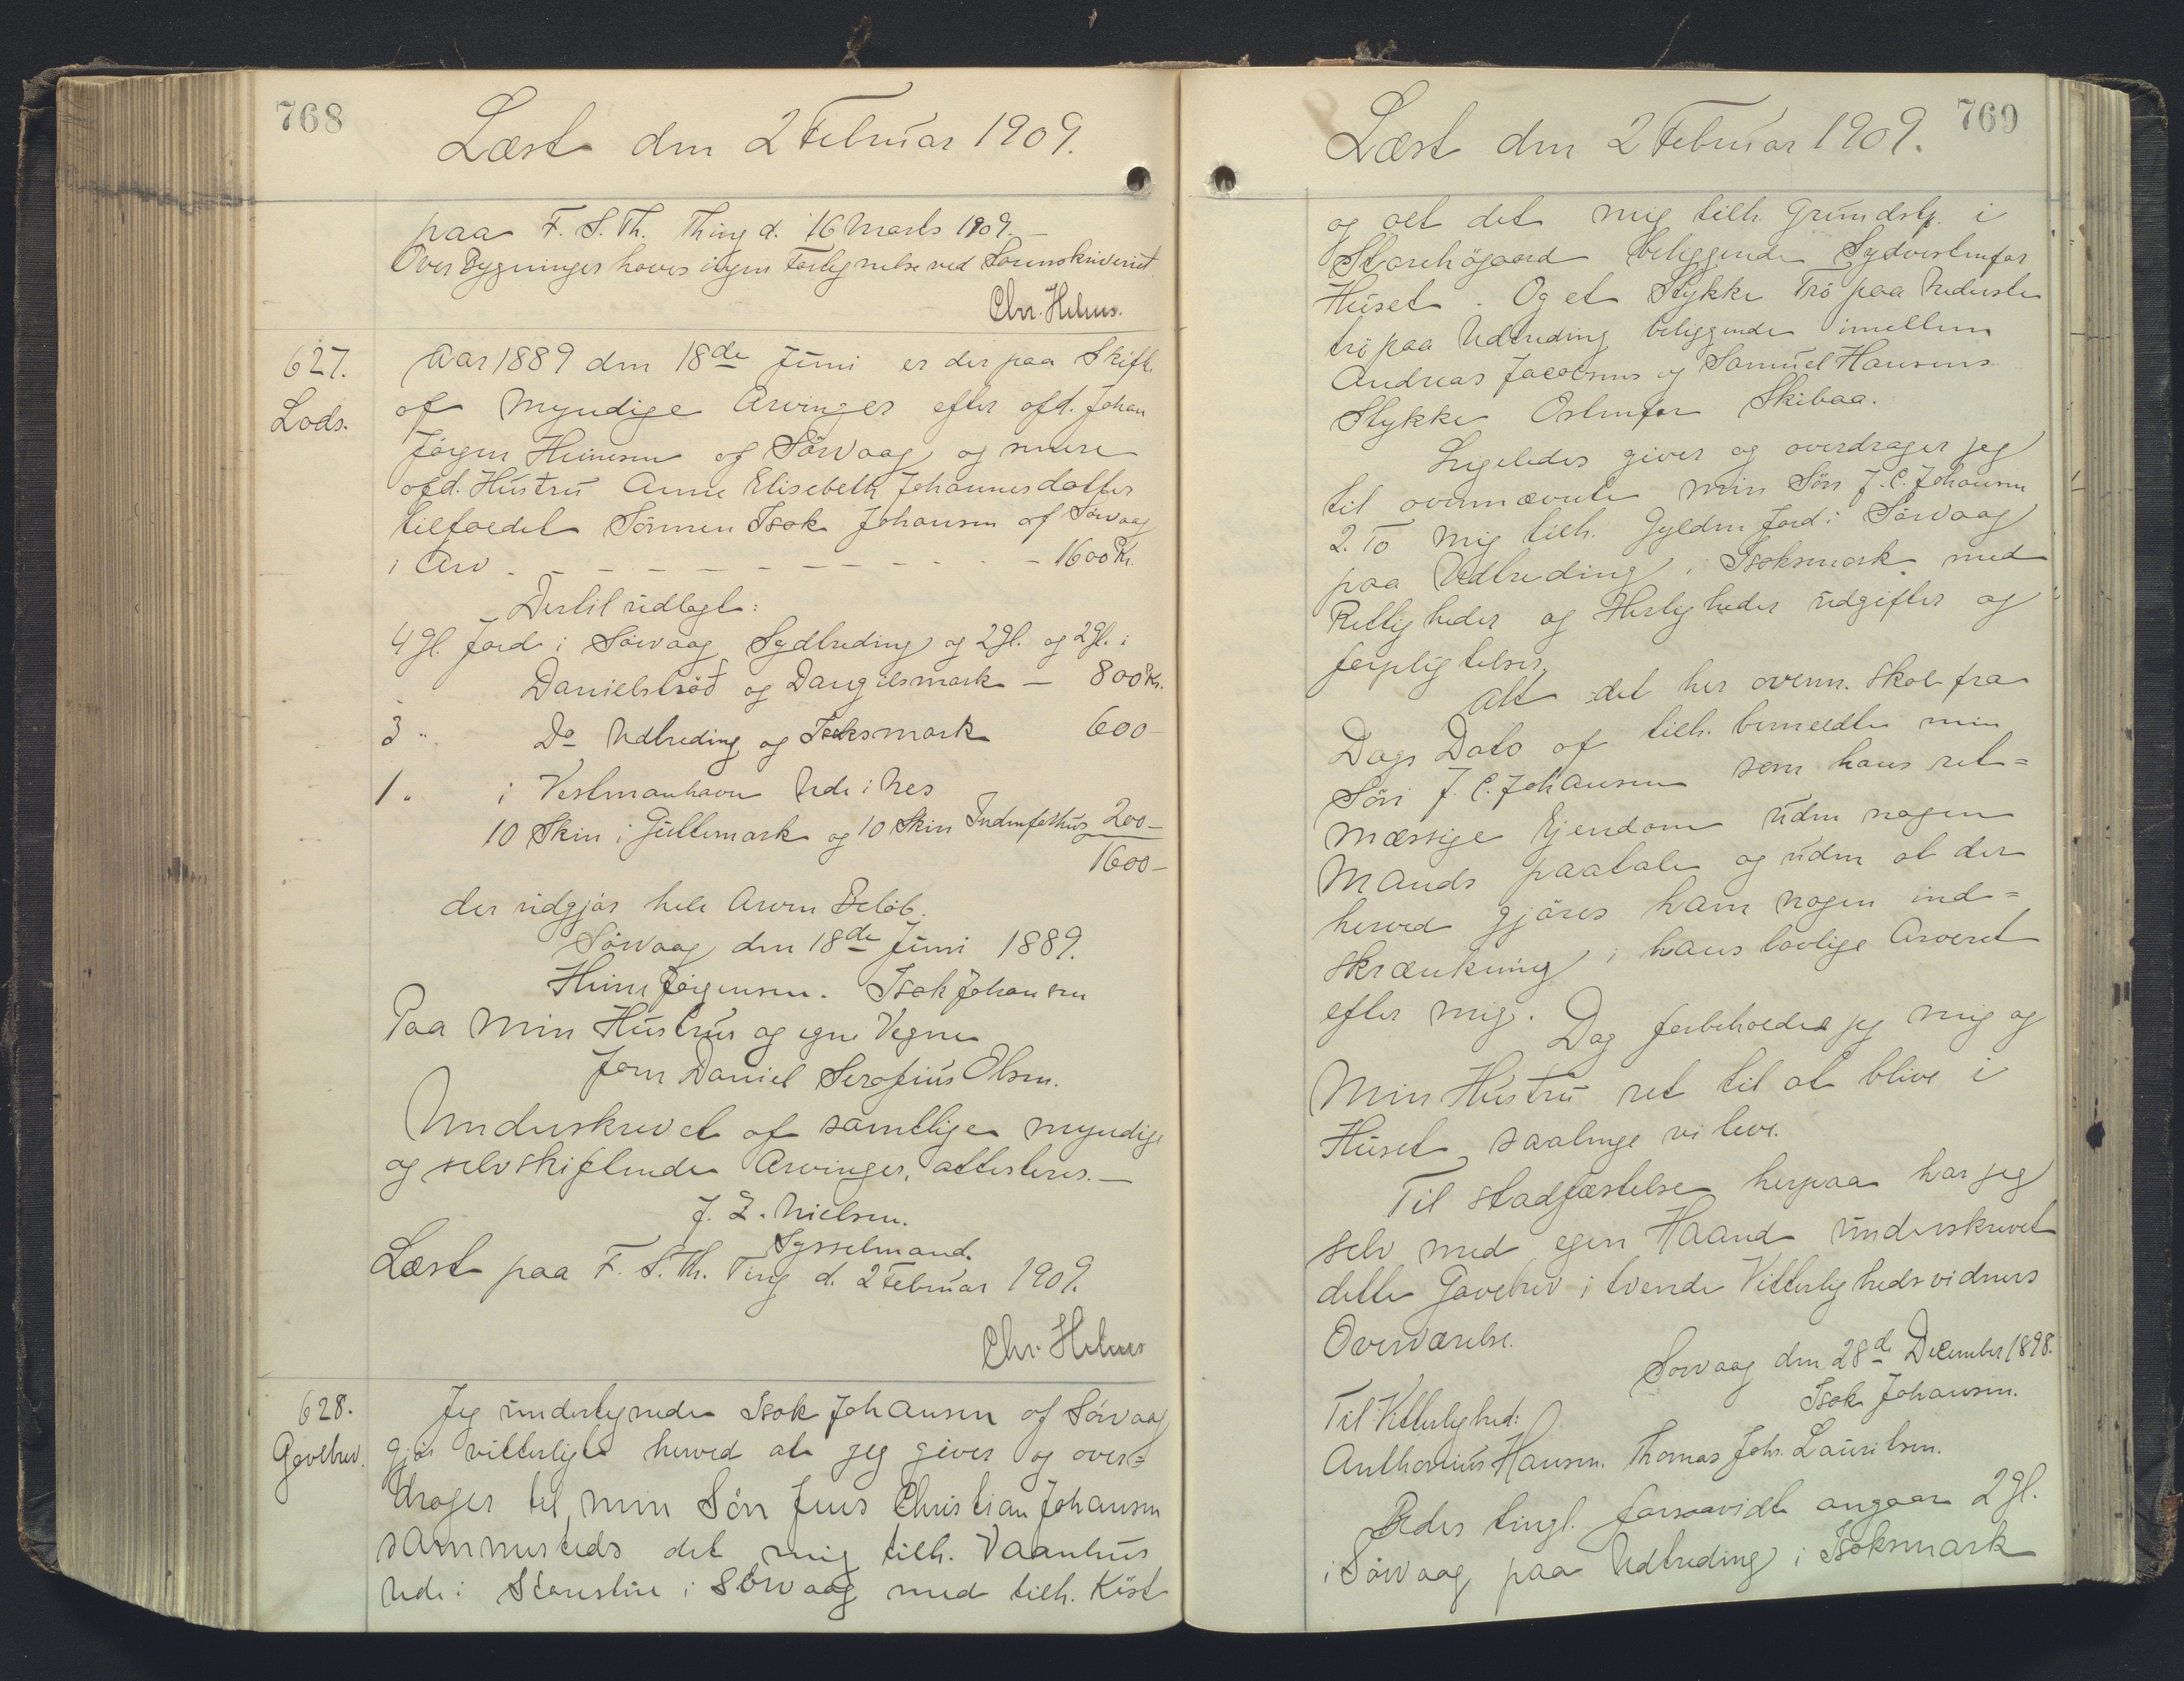 768
Læst den 2 Februar 1909.
paa F. S. Th. Thing d. 16 Marts 1909. —
Over Bygninger haves ingen Forligelse ved Sorenskriveriet.
Chr. Helms.
627.
Lods.
Aar 1889 den 18de Juni er der paa Skifte
af Myndige Arvinger efter afd. Johan
Jörgen Heinesen af Sörvaag og senere
afd. Hustru Anne Elisebeth Johannesdatter
tilfaldet Sönnen Isak Johansen af Sörvaag
i Arv - - - - - - - - - - - 1600 Kr.
Dertil udlagt:
4 Gl. Jord i Sörvaag Sydtreding og 2 Gl. og 2 Gl. i
Danielströd og Dangelsmark — 800 Kr.
3 " Do Udtreding og Isaksmark 600 —
1 " i Vestmanhavn Ude i Nes
10 Skin i Gullemark og 10 Skin Indenfoshus 200 —
1600 —
der udgjör hele Arven Belöb.
Sörvaag den 18de Juni 1889.
Heine Jörgensen. Isak Johansen
Paa Min Hustrus og egne Vegne
Joen Daniel Serafius Olsen.
Underskrevet af samtlige myndige
og selvskiftende Arvinger, attesteres. —
J. Z. Nielsen.
Sysselmand.
Læst paa F. S. Th. Ting d. 2 Februar 1909.
Chr. Helms
628.
Gavebrev.
Jeg undertegnede Isak Johansen af Sörvaag
Gjör vitterligt herved at jeg giver og over=
drager til min Sön Jens Christian Johansen
sammesteds det mig tilh. Vaanhus
Ude i Starestue i Sörvaag med tilh. Köst
769
Læst den 2 Februar 1909.
og alt det mig tilh. Grundsty. i
Starehögaard beliggende Sydvestenfor
Huset. Og et Stykke Trö paa Nederste
trö paa Udtreding beliggende imellem
Andreas Jacobsens og Samuel Hansens
Stykke Ostenfor Skibaa.
Ligeledes giver og overdrager jeg
til ovennævnte min Sön J. C. Johansen
2. To mig tilh. Gylden Jord i Sörvaag
paa Udtreding i Isaksmark med
Rettigheder og Herligheder udgifter og
forpligtelser.
Alt det her ovenn. skal fra
Dags Dato af tilh. bemeldte min
Sön J. C. Johansen som hans ret=
mæssige Ejendom uden nogen
Mands paatale og uden at der
herved gjöres ham nogen ind=
skrænkning i hans lovlige Arveret
efter mig. Dog forbeholder jeg mig og
Min Hustru ret til at blive i
Huset saalenge vi leve.
Til stadfæstelse herpaa har jeg
selv med egen Haand underskrevet
dette Gavebrev i tvende Vitterlighedsvidners
Overværelse.
Sörvaag den 28de December 1898.
Isak Johansen.
Til Vitterlighed:
Anthonius Hansen. Thomas Johs. Lauritsen.
Bedes tingl. forsaavidt angaar 2 Gl.
i Sörvaag paa Udtreding i Isaksmark